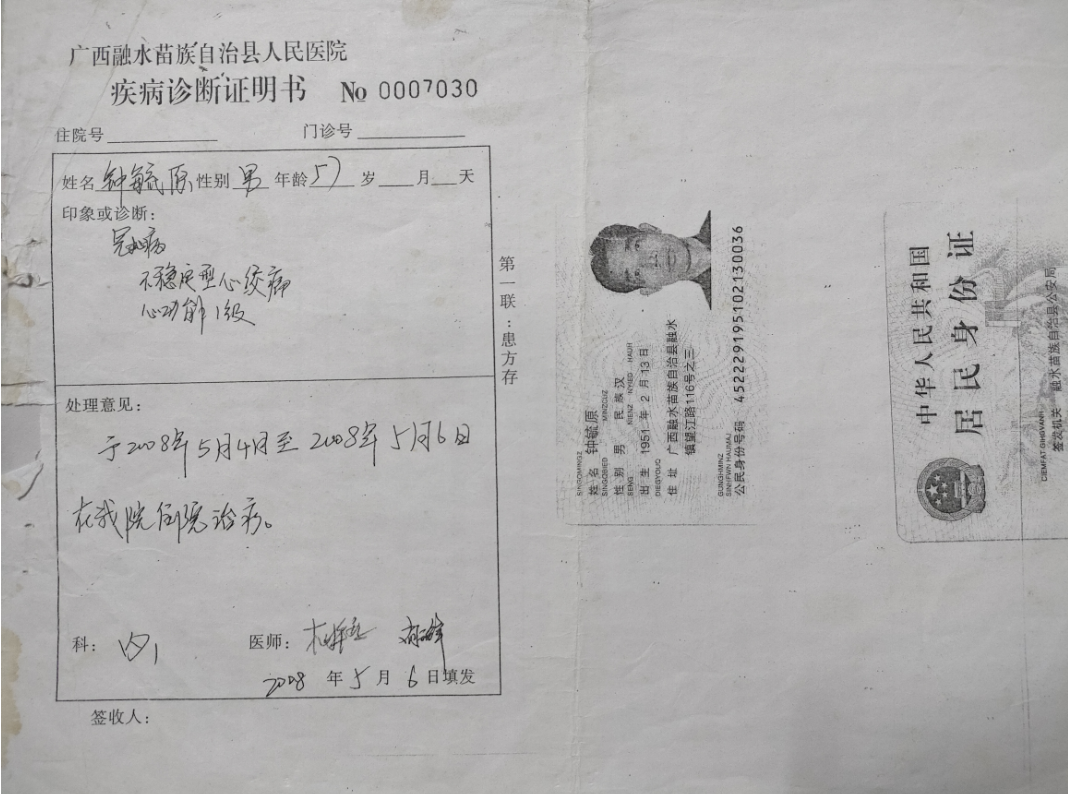 广西融水苗族自治县人民医院
疾病诊断证明书 No 0007030
住院号 门诊号
姓名 钟毓原 性别 男 年龄 57 岁 月 天
印象或诊断：
冠心病
不稳定型心绞痛
心功能1级
第一联：患方存
处理意见：
于2008年5月4日至2008年5月6日
在我院住院治疗。
科： 内1 医师：
2008 年 5 月 6 日填发
签收人：
姓名 钟毓原
性别 男 民族 汉
出生 1951年2月13日
住址 广西融水苗族自治县融水
镇望江路116号之三
公民身份号码 452229195102130036
中华人民共和国
居民身份证
签发机关 融水苗族自治县公安局